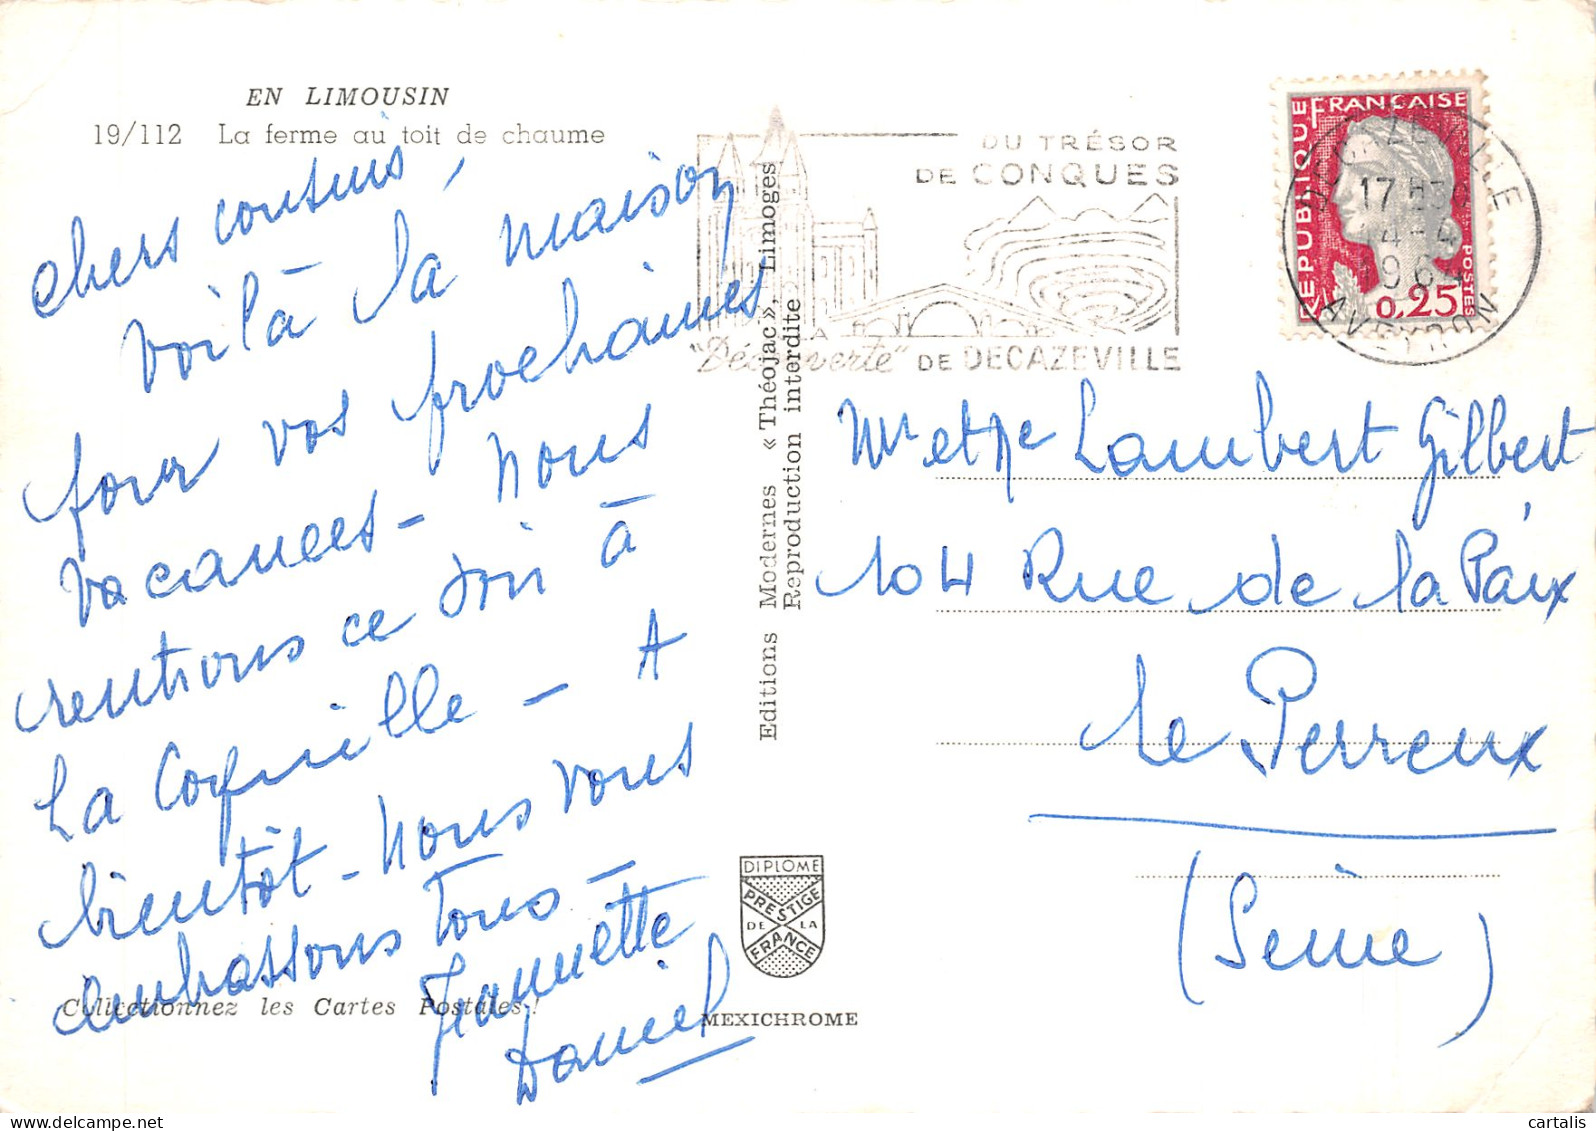 EN LIMOUSIN
19/112 La ferme au toit de chaume
chers cousins,
Voilà la maison
pour vos prochaines
vacances - Nous
rentrons ce soir à
La Coquille - A
bientôt - Nous vous
embrassons tous -
Jeannette
Daniel
Collectionnez les Cartes Postales !
Editions Modernes « Théojac », Limoges
Reproduction interdite
DIPLOME
PRESTIGE
DE LA
FRANCE
MEXICHROME
DU TRÉSOR
DE CONQUES
"Découverte" DE DECAZEVILLE
REPUBLIQUE FRANÇAISE
POSTES
0,25
DECAZEVILLE
17 H30
4-4
1964
AVEYRON
Mr et Me Lambert Gilbert
104 Rue de la Paix
Le Perreux
(Seine)
cartalis